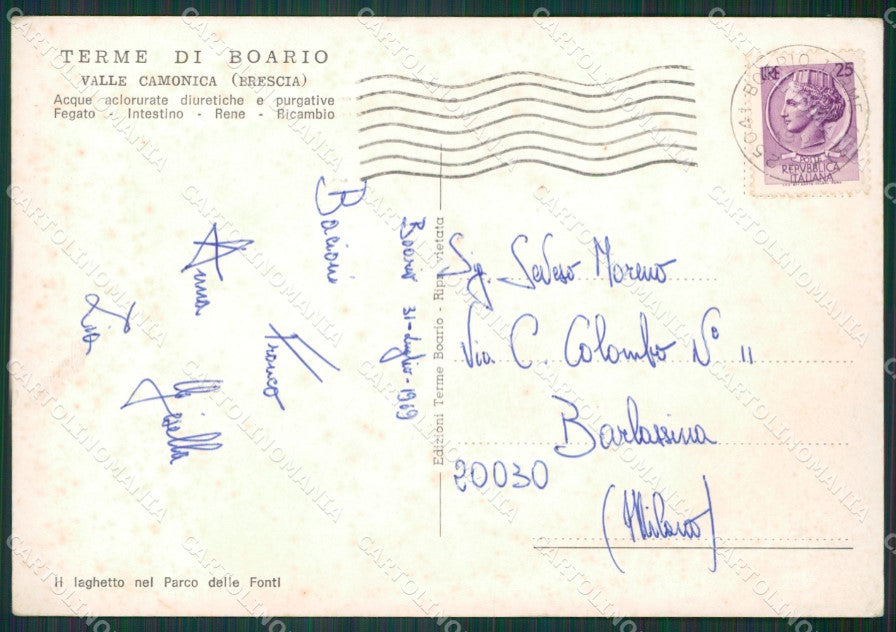 TERME DI BOARIO
VALLE CAMONICA (BRESCIA)
Acque aclorurate diuretiche e purgative
Fegato - Intestino - Rene - Ricambio
LIRE 25
POSTE
REPVBBLICA
ITALIANA
BOARIO TERME
Boario 31-Luglio-1969
Bacioni
Franco
Anna
Lia
Edizioni Terme Boario - Ripr. vietata
Sig. Seveso Moreno
Via C. Colombo N° 11
Barlassina
20030
(Milano)
Il laghetto nel Parco delle Fonti
CARTOLINOMANIA